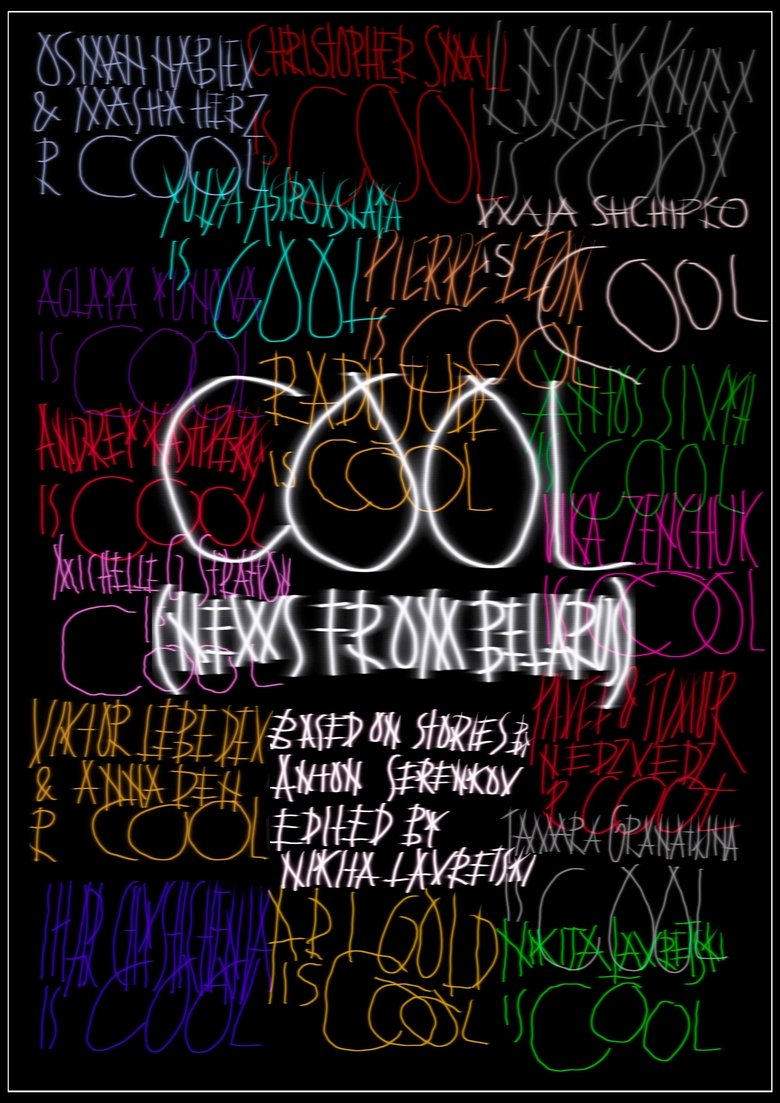 OSMAN NABIEV
& MASHA HERZ
R COOL
CHRISTOPHER SMALL
IS COOL
LESLEY
IS COOL
YULIYA
IS COOL
IS COOL
PIERRE LÉON
IS COOL
AGLAYA
IS COOL
RADU JUDE
IS COOL
IS COOL
ANDREY
IS COOL
COOL
VIKA ZENCHUK
IS COOL
MICHELLE
IS COOL
(NEWS FROM BELARUS)
VIKTOR LEBEDEV
& ANNA DEN
R COOL
BASED ON STORIES BY
ANTON SERENKOV
EDITED BY
NIKITA LAVRETSKI
PAVEL & TIMUR
R COOL
TAMARA GRANATKINA
IS COOL
IHAR
IS COOL
ARI GOLD
IS COOL
NIKITA LAVRETSKI
IS COOL